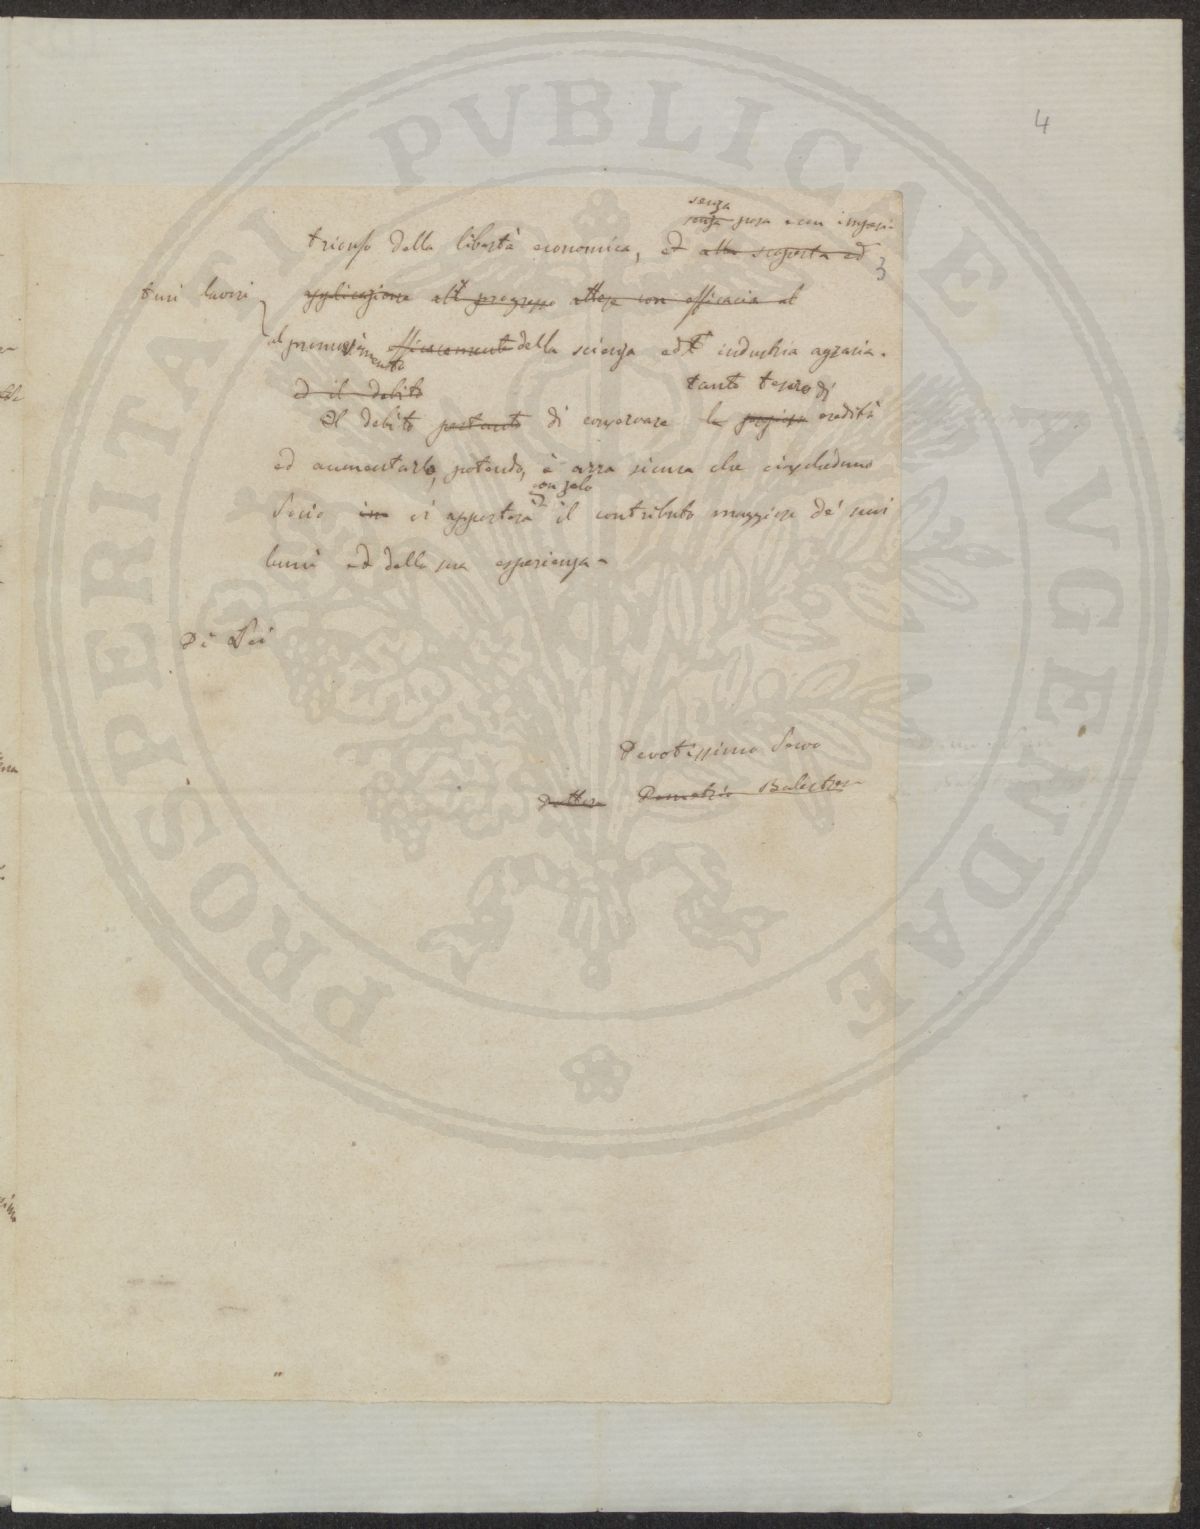 4
senza
senza posa e con imperi-
trionfo della libertà economica, ed alla scoperta ed
3
turi lavori applicazione al progresso attese con efficacia al
al promuovimento efficacemente della scienza ed industria agraria.
ed il debito
tanto tesoro di
Il debito pertanto di conservare la eredità
ed aumentarlo, potendo, è arra sicura che ciascheduno
con zelo
Socio vi apporterà il contributo maggiore de' suoi
lumi ed della sua esperienza.
Di Lei
Devotissimo Servo
Dottore Demetrio Balestra
PROSPERITATI PVBLICAE AVGENDAE